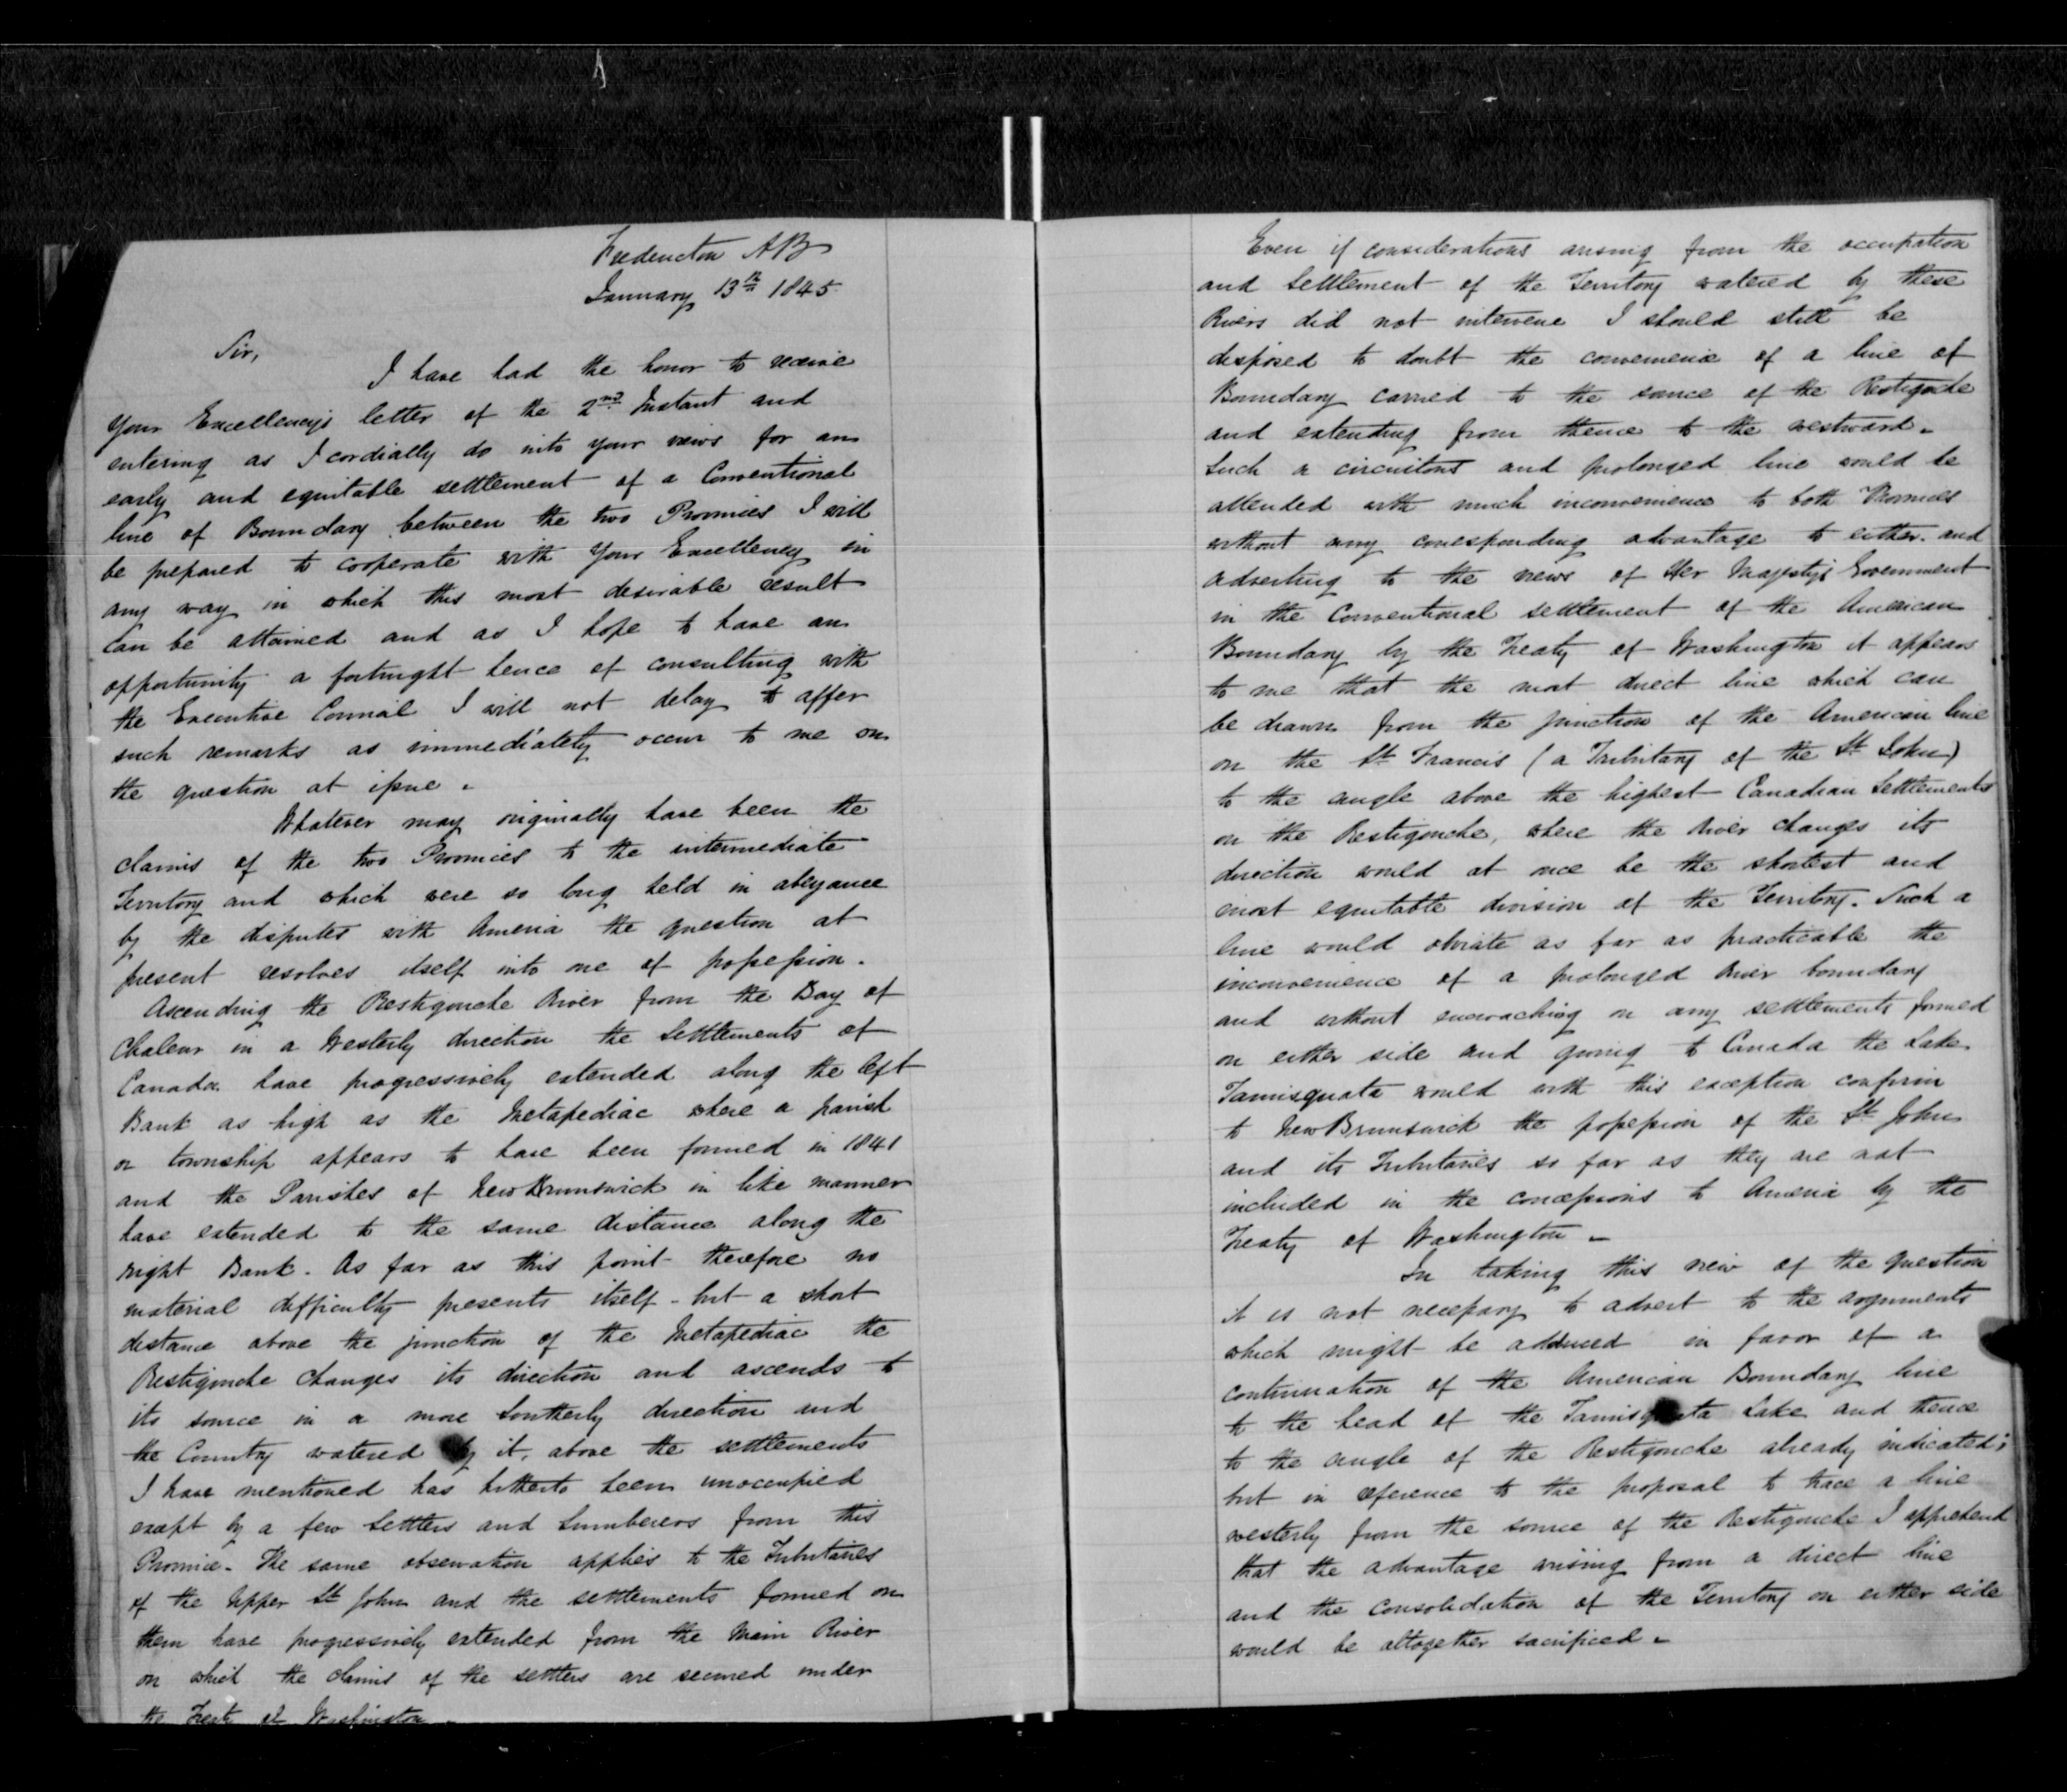 Fredericton NB
January 13th 1845
Sir,
I have had the honor to receive
Your Excellency's letter of the 2nd Instant and
entering as I cordially do into your views for an
early and equitable settlement of a Conventional
line of Boundary between the two Provinces I will
be prepared to cooperate with Your Excellency in
any way in which this most desirable result
can be attained and as I hope to have an
opportunity a fortnight hence of consulting with
the Executive Council I will not delay to offer
such remarks as immediately occur to me on
the question at issue.
Whatever may originally have been the
claims of the two Provinces to the intermediate
Territory and which were so long held in abeyance
by the disputes with America the question at
present resolves itself into one of possession.
Ascending the Restigouche River from the Bay of
Chaleur in a Westerly direction the Settlements of
Canada have progressively extended along the left
Bank as high as the Metapediac where a parish
or township appears to have been formed in 1841
and the Parishes of New Brunswick in like manner
have extended to the same distance along the
right Bank. As far as this point therefore no
material difficulty presents itself - but a short
distance above the junction of the Metapediac the
Restigouche changes its direction and ascends to
its source in a more Southerly direction and
the Country watered by it, above the settlements
I have mentioned has hitherto been unoccupied
except by a few Settlers and Lumberers from this
Province. The same observation applies to the Tributaries
of the Upper St John and the settlements formed on
them have progressively extended from the Main River
on which the claims of the settlers are secured under
the Treaty of Washington.
Even if considerations arising from the occupation
and Settlement of the Territory watered by these
Rivers did not intervene I should still be
disposed to doubt the convenience of a line of
Boundary carried to the source of the Restigouche
and extending from thence to the westward.
Such a circuitous and prolonged line would be
attended with much inconvenience to both Provinces
without any corresponding advantage to either. and
adverting to the views of Her Majesty's Government
in the Conventional settlement of the American
Boundary by the Treaty of Washington it appears
to me that the most direct line which can
be drawn from the junction of the American line
on the St Francis (a Tributary of the St John)
to the angle above the highest Canadian Settlements
on the Restigouche, where the River changes its
direction would at once be the shortest and
most equitable division of the Territory. Such a
line would obviate as far as practicable the
inconvenience of a prolonged River boundary
and without encroaching on any settlements formed
on either side and giving to Canada the Lake
Tamisquata would with this exception confirm
to New Brunswick the possession of the St John
and its Tributaries so far as they are not
included in the concessions to America by the
Treaty of Washington.
In taking this view of the question
it is not necessary to advert to the arguments
which might be adduced in favor of a
continuation of the American Boundary line
to the head of the Tamisquata Lake and thence
to the angle of the Restigouche already indicated;
but in reference to the proposal to trace a line
westerly from the source of the Restigouche I apprehend
that the advantage arising from a direct line
and the consolidation of the Territory on either side
would be altogether sacrificed.